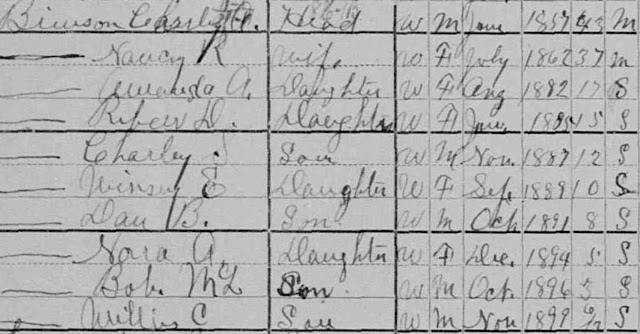 Brunson Charley A. Head W M Jan 1857 43 M
—— Nancy R Wife W F July 1862 37 M
—— Amanda A. Daughter W F Aug 1882 17 S
—— D. Daughter W F Jan. 1885 15 S
—— Charley S Son W M Nov. 1887 12 S
—— E Daughter W F Sep. 1889 10 S
—— Dan B. Son W M Oct. 1891 8 S
—— Nora A. Daughter W F Dec. 1894 5 S
—— Bob. Mc L Son W M Oct 1896 3 S
—— Willis C Son W M Nov 1899 S